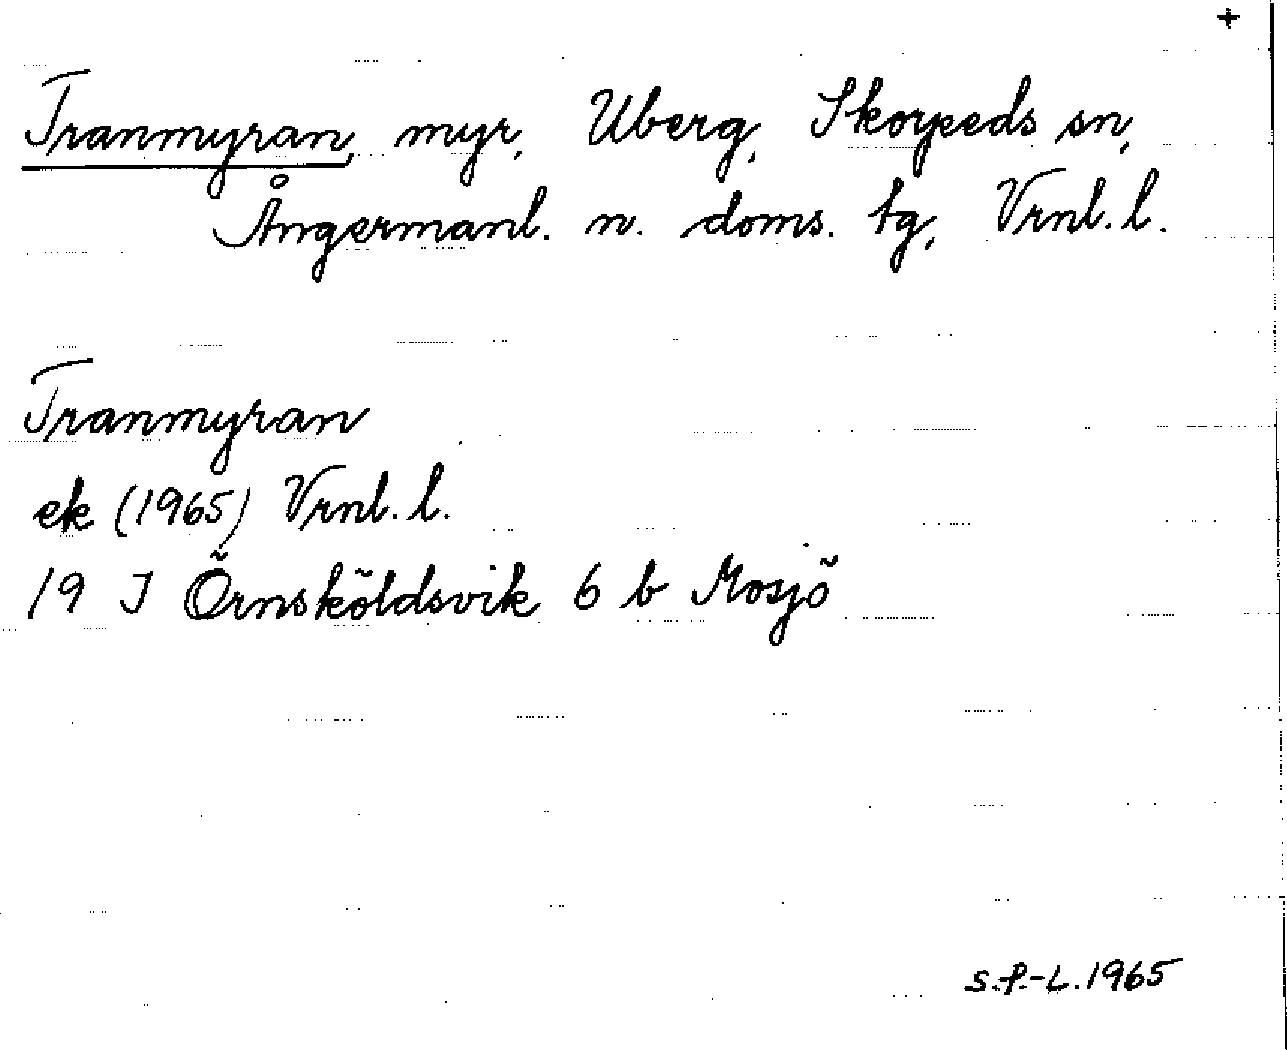 +
Tranmyran, myr, Uberg, Skorpeds sn,
Ångermanl. n. doms. tg, Vrnl. l.
Tranmyran
ek (1965) Vrnl. l.
19 J Örnsköldsvik 6 b Mosjö
S.P.-L. 1965